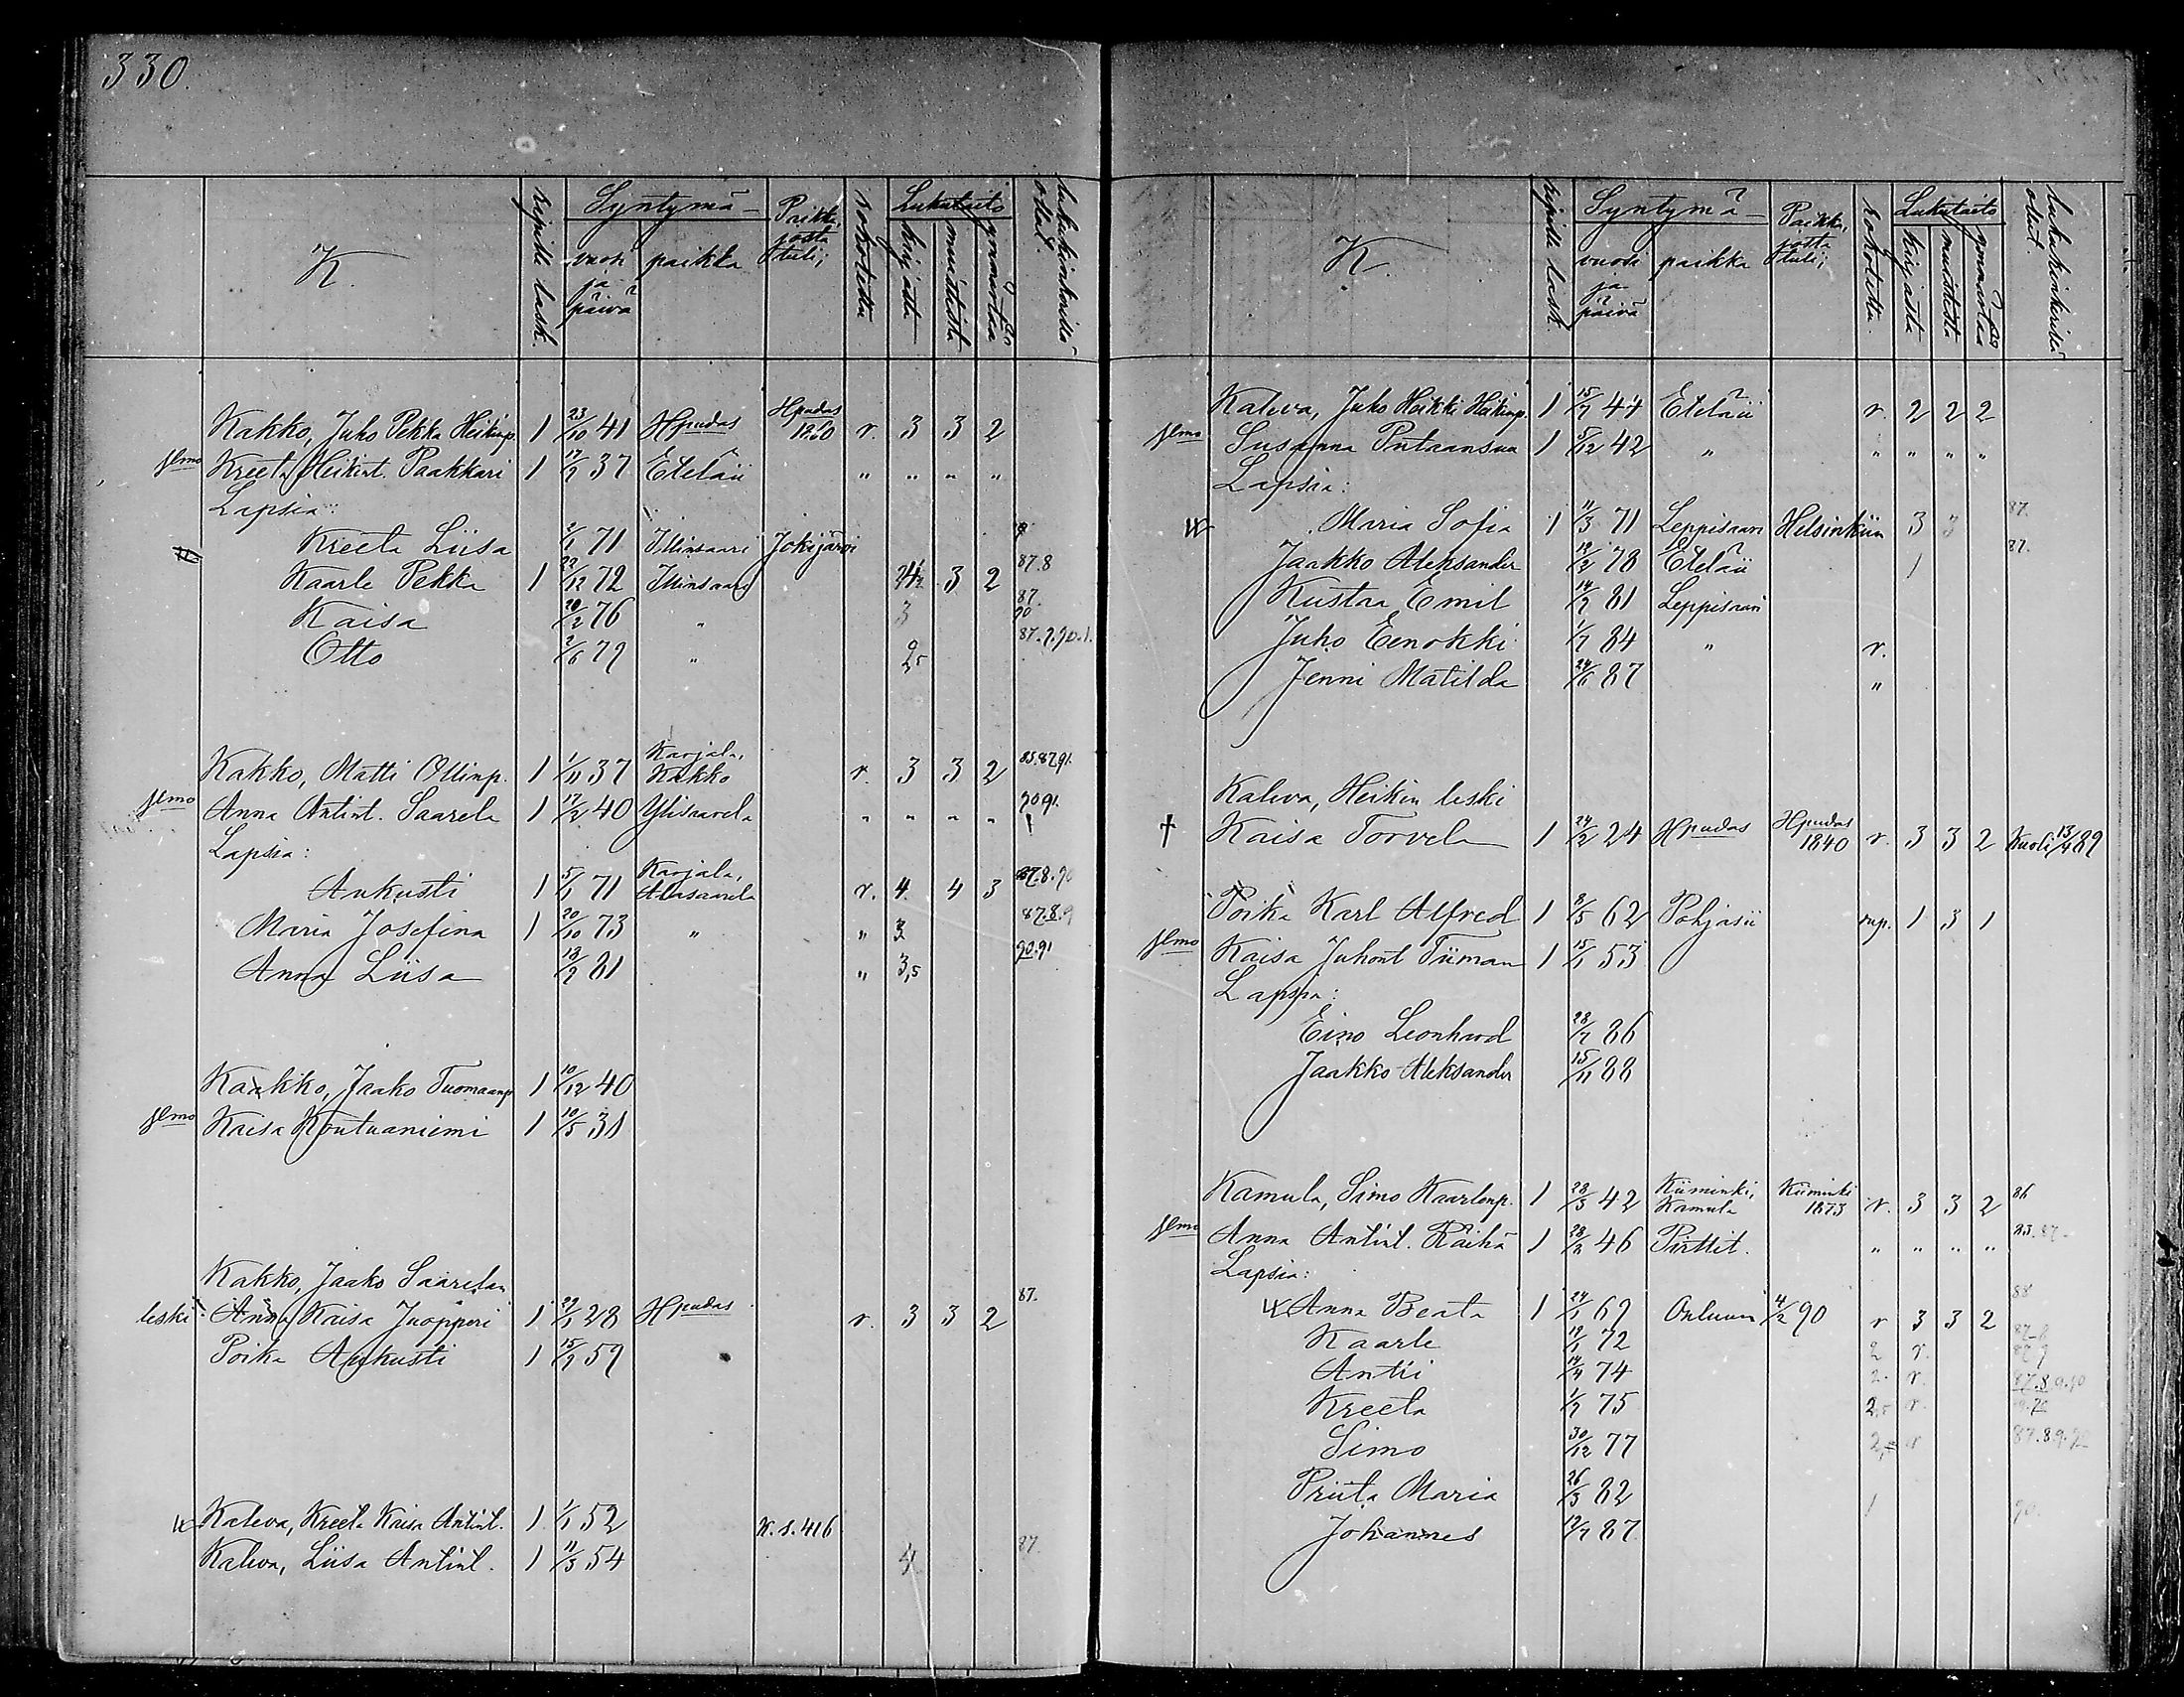 330.
K.
ripille lask.
Syntymä-
vuosi ja päivä
paikka
Paikka, josta tuli;
rokotettu
Lukutaito
kirjasta
muistista
ymmärtää
lukukinkerillä ollut.
Kakko, Juho Pekka Heikinp. 1 23/10 41 Hpudas Hpudas 1860 r. 3 3 2
vmo Kreeta Heikint. Paakkari 1 17/9 37 Eteläii " " " "
Lapsia:
Kreeta Liisa 2/1 71 Illinsaari Jokijärvi
Kaarle Pekka 1 22/12 72 Illinsaari 3 2 87.8
Kaisa 20/2 76 " 3 87. 90
Otto 2/6 79 " 2,5 87.9.90.1.
Kakko, Matti Ollinp. 1 1/11 37 Karjala, Kakko r. 3 3 2 85.87.91.
vmo Anna Antint. Saarela 1 17/2 40 Ylisaarela " " " " 90 91.
Lapsia:
Aukusti 1 5/1 71 Karjala, Alasaarela r. 4. 4 3 87.8.90
Maria Josefina 1 20/10 73 " " 3 87.8.9
Anna Liisa 13/9 81 " " 3,5 90.91
Kaakko, Jaako Tuomaanp 1 10/12 40
vmo Kaisa Koutuaniemi 1 10/5 31
Kakko, Jaako Saarelan
leski Anna Kaisa Juopperi 1 22/1 28 Hpudas r. 3 3 2 87.
Poika Aukusti 1 15/9 59
Kaleva, Kreeta Kaisa Antint. 1 1/1 52 K. s. 416
Kaleva, Liisa Antint. 1 11/3 54 4 87.
K.
ripille lask.
Syntymä-
vuosi ja päivä
paikka
Paikka, josta tuli;
rokotettu.
Lukutaito
kirjasta
muistista
ymmärtää
lukukinkerillä ollut.
Kaleva, Juho Heikki Heikinp. 1 15/7 44 Eteläii r. 2 2 2
vmo Susanna Putaansuu 1 5/12 42 " " " " "
Lapsia:
Maria Sofia 1 11/3 71 Leppisaari Helsinkiin 3 3 87.
Jaakko Aleksander 12/2 78 Eteläii 1 87.
Kustaa Emil 14/9 81 Leppisaari
Juho Eenokki 1/7 84 " r.
Jenni Matilda 24/6 87 "
Kaleva, Heikin leski
† Kaisa Torvela 1 24/2 24 Hpudas Hpudas 1840 r. 3 3 2 Kuoli 13/4 89
Poika Karl Alfred 1 8/5 62 Pohjasii rup. 1 3 1
vmo Kaisa Juhont Tiiman 1 15/1 53
Lapsia:
Eino Leonhard 28/7 86
Jaakko Aleksander 15/11 88
Kamula, Simo Kaarlonp. 1 28/3 42 Kiiminki, Kamula Kiiminki 1873 r. 3 3 2 86
vmo Anna Antint. Räihä 1 28/3 46 Pirttit. " " " " 83.87.
Lapsia:
Anna Beata 1 24/1 69 Ouluun 4/2 90 r 3 3 2 88
Kaarle 19/1 72 2 r. 87.8
Antti 14/4 74 2. r. 87.8.9.90
Kreeta 1/9 75 2,5 r.
Simo 30/12 77 r 87.8.9.90
Priita Maria 26/3 82 1 90.
Johannes 12/7 87.